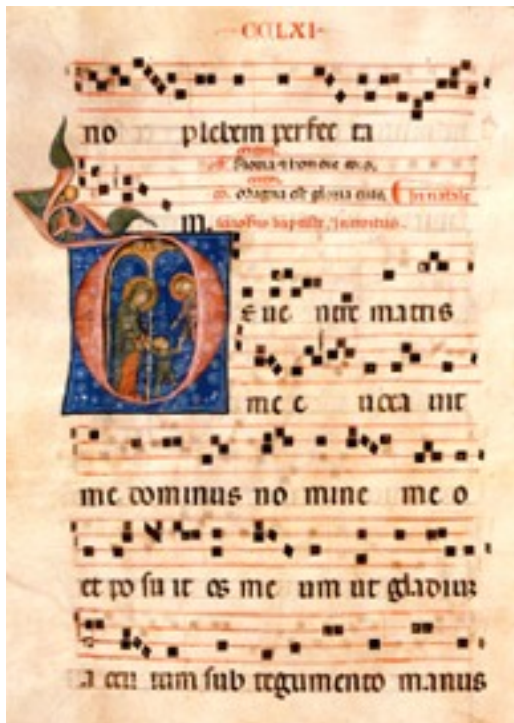 CCLXI
no plebem perfec ta
gloria et honore
Magna est gloria eius, In natale
m. baptiste,
De uen tre matris
me e uoca uit
me dominus no mine me o
et po su it os me um ut gladium
a cu tum sub tegumento manus